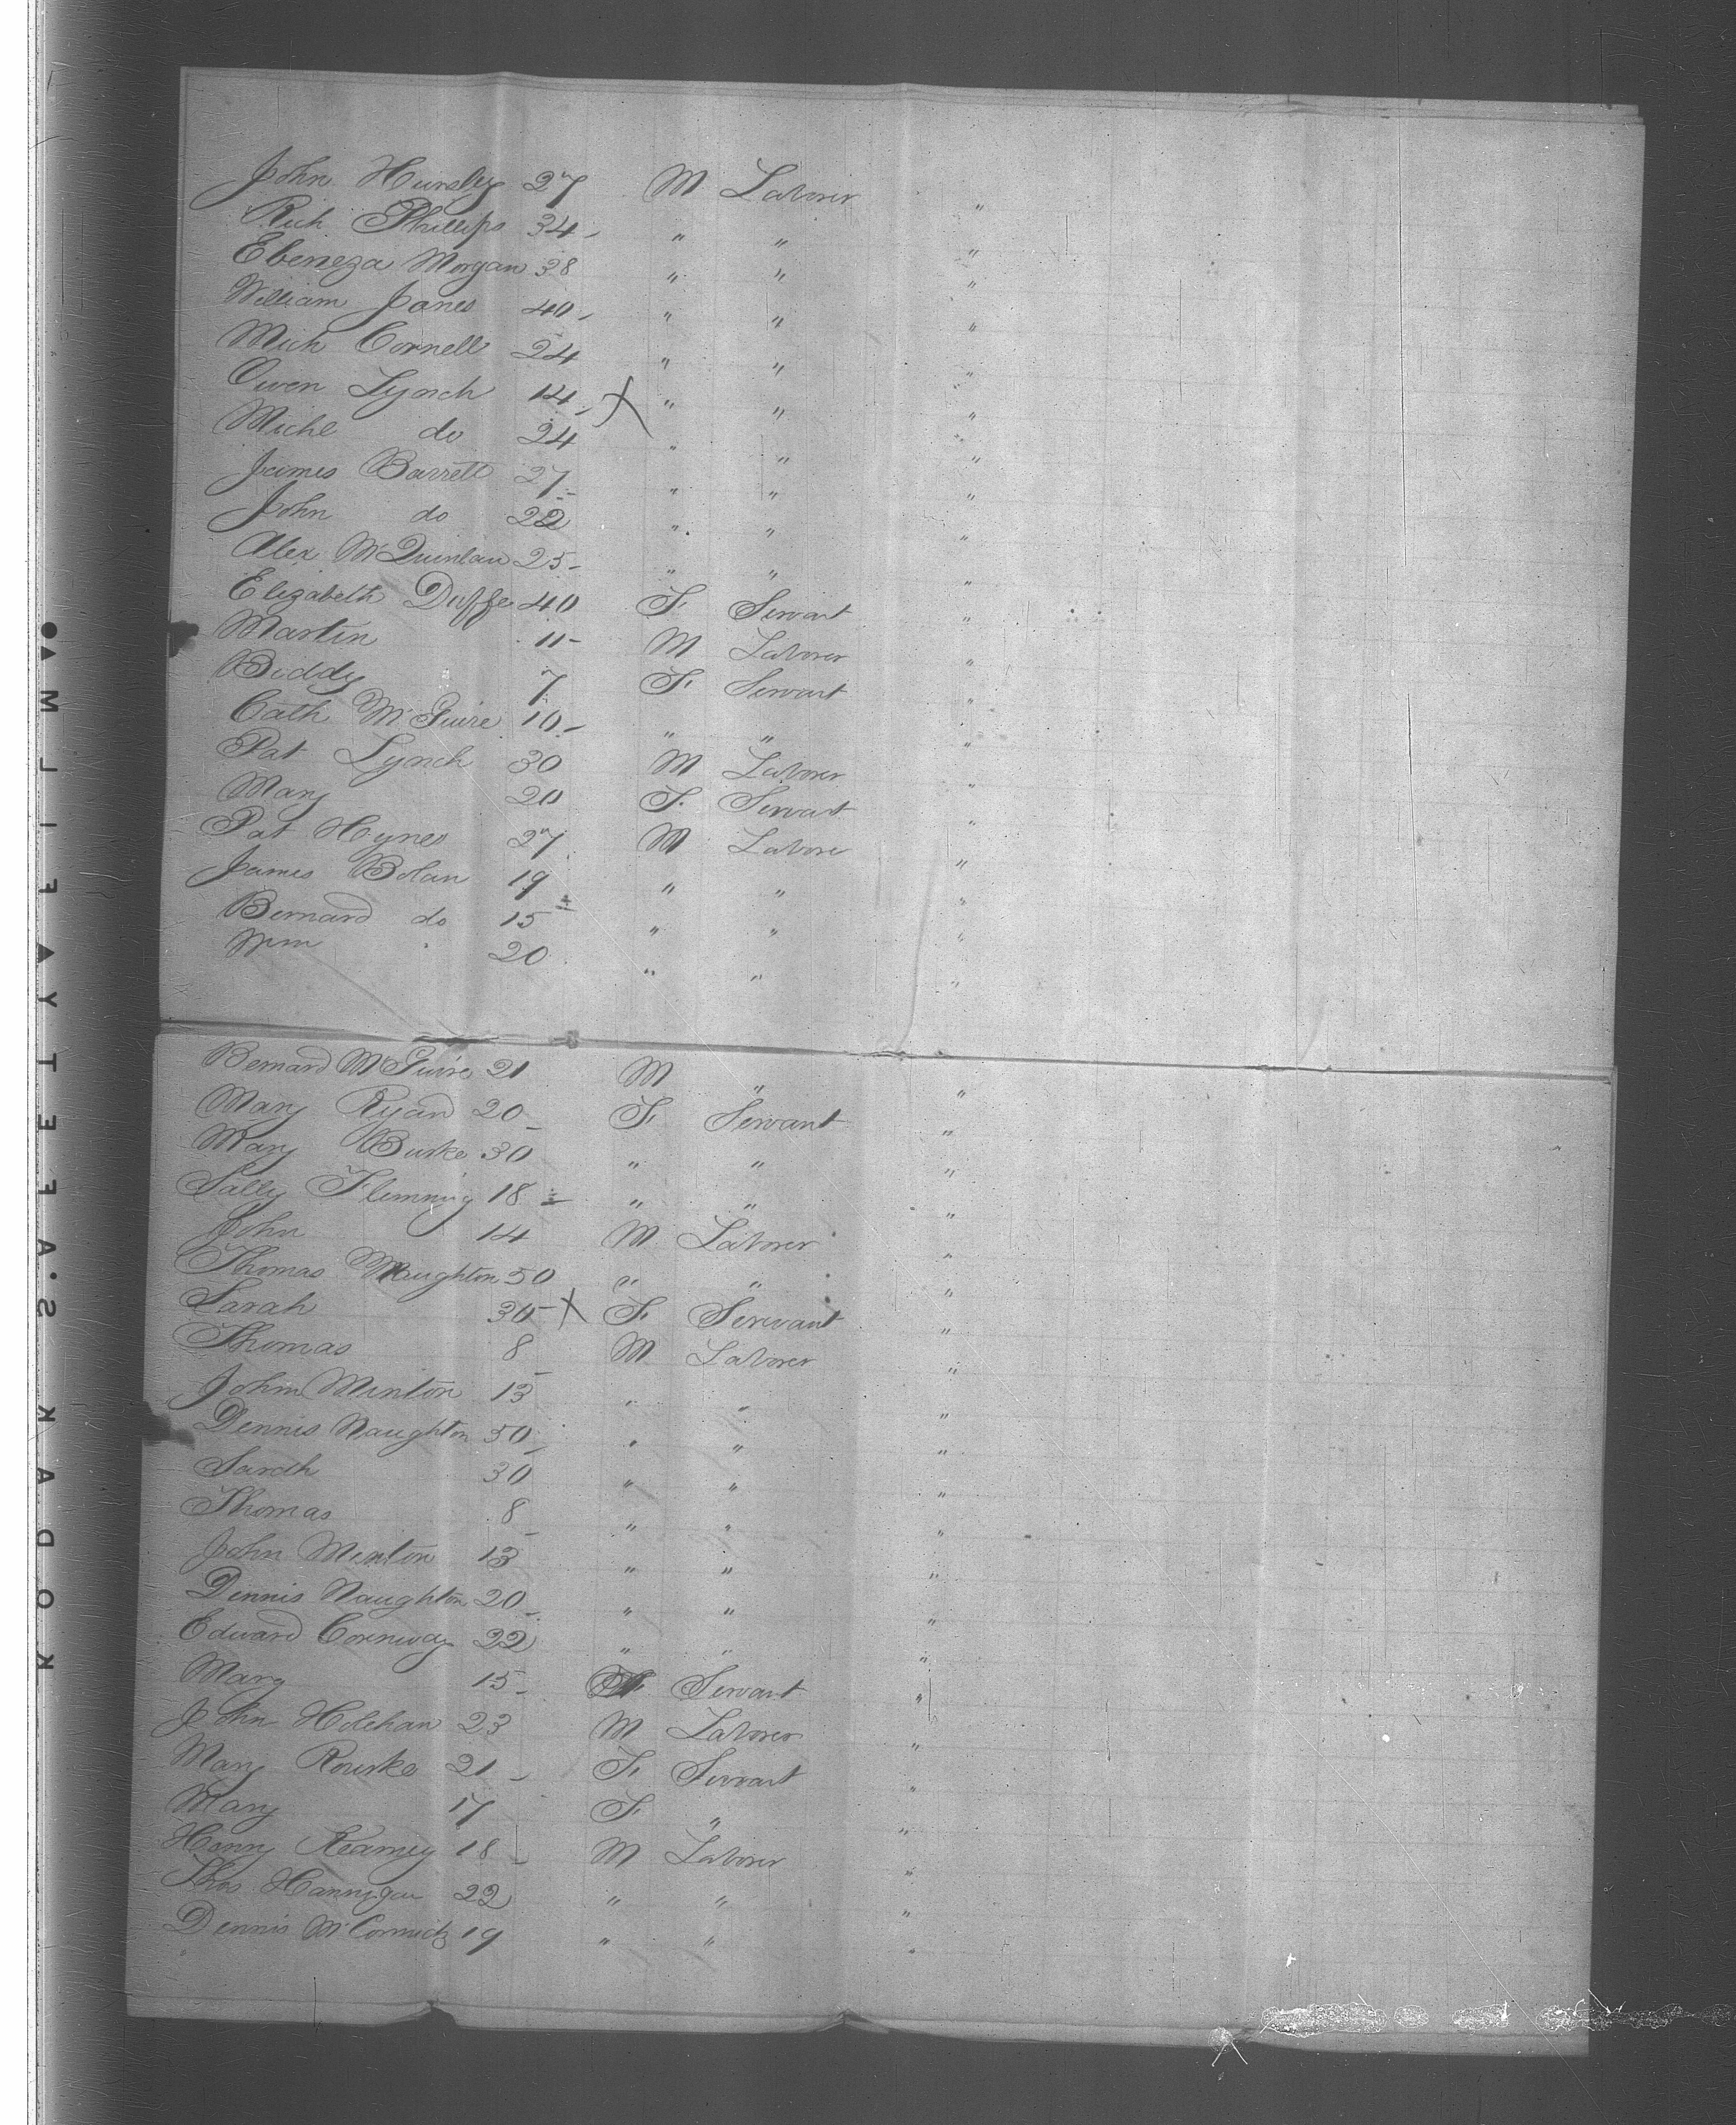 John Hursley 27 M Laborer "
Rich Phillips 34 - " " "
Ebeneza Morgan 38 " " "
William Jones 40 - " " "
Mich Cornell 24 " " "
Owen Lynch 14 - X " " "
Michl do 24 " " "
James Barrett 27 - " " "
John do 22 " " "
Alex McQuinlan 25 - " " "
Elizabeth Duffe 40 F Servant "
Martin 11 - M Laborer "
Biddy 7 F Servant "
Cath McGuire 10 - " " "
Pat Lynch 30 M Laborer "
Mary 20 F Servant "
Pat Hynes 27 M Labore "
James Bolan 19 " " "
Bernard do 15 " " "
Wm 20 " " "
Bernard McGuire 21 M " "
Mary Ryan 20 - F Servant "
Mary Burke 30 " " "
Sally Flemming 18 - " " "
John 14 M Laborer "
Thomas Naughton 50 " " "
Sarah 30 - X F Servant "
Thomas 8 M Laborer "
John Minton 13 " " "
Dennis Naughton 50 - " " "
Sarah 30 " " "
Thomas 8 - " " "
John Minton 13 " " "
Dennis Naughton 20 - " " "
Edward Conway 22 " " "
Mary 15 - F Servant "
John Holehan 23 M Laborer "
Mary Rourke 21 - F Servant "
Mary 17 F " "
Henry Kearney 18 - M Laborer "
Thos Hannigan 22 " " "
Dennis McCormick 19 " " "
KODAK S.A.FETY ▲ FILM ▲●